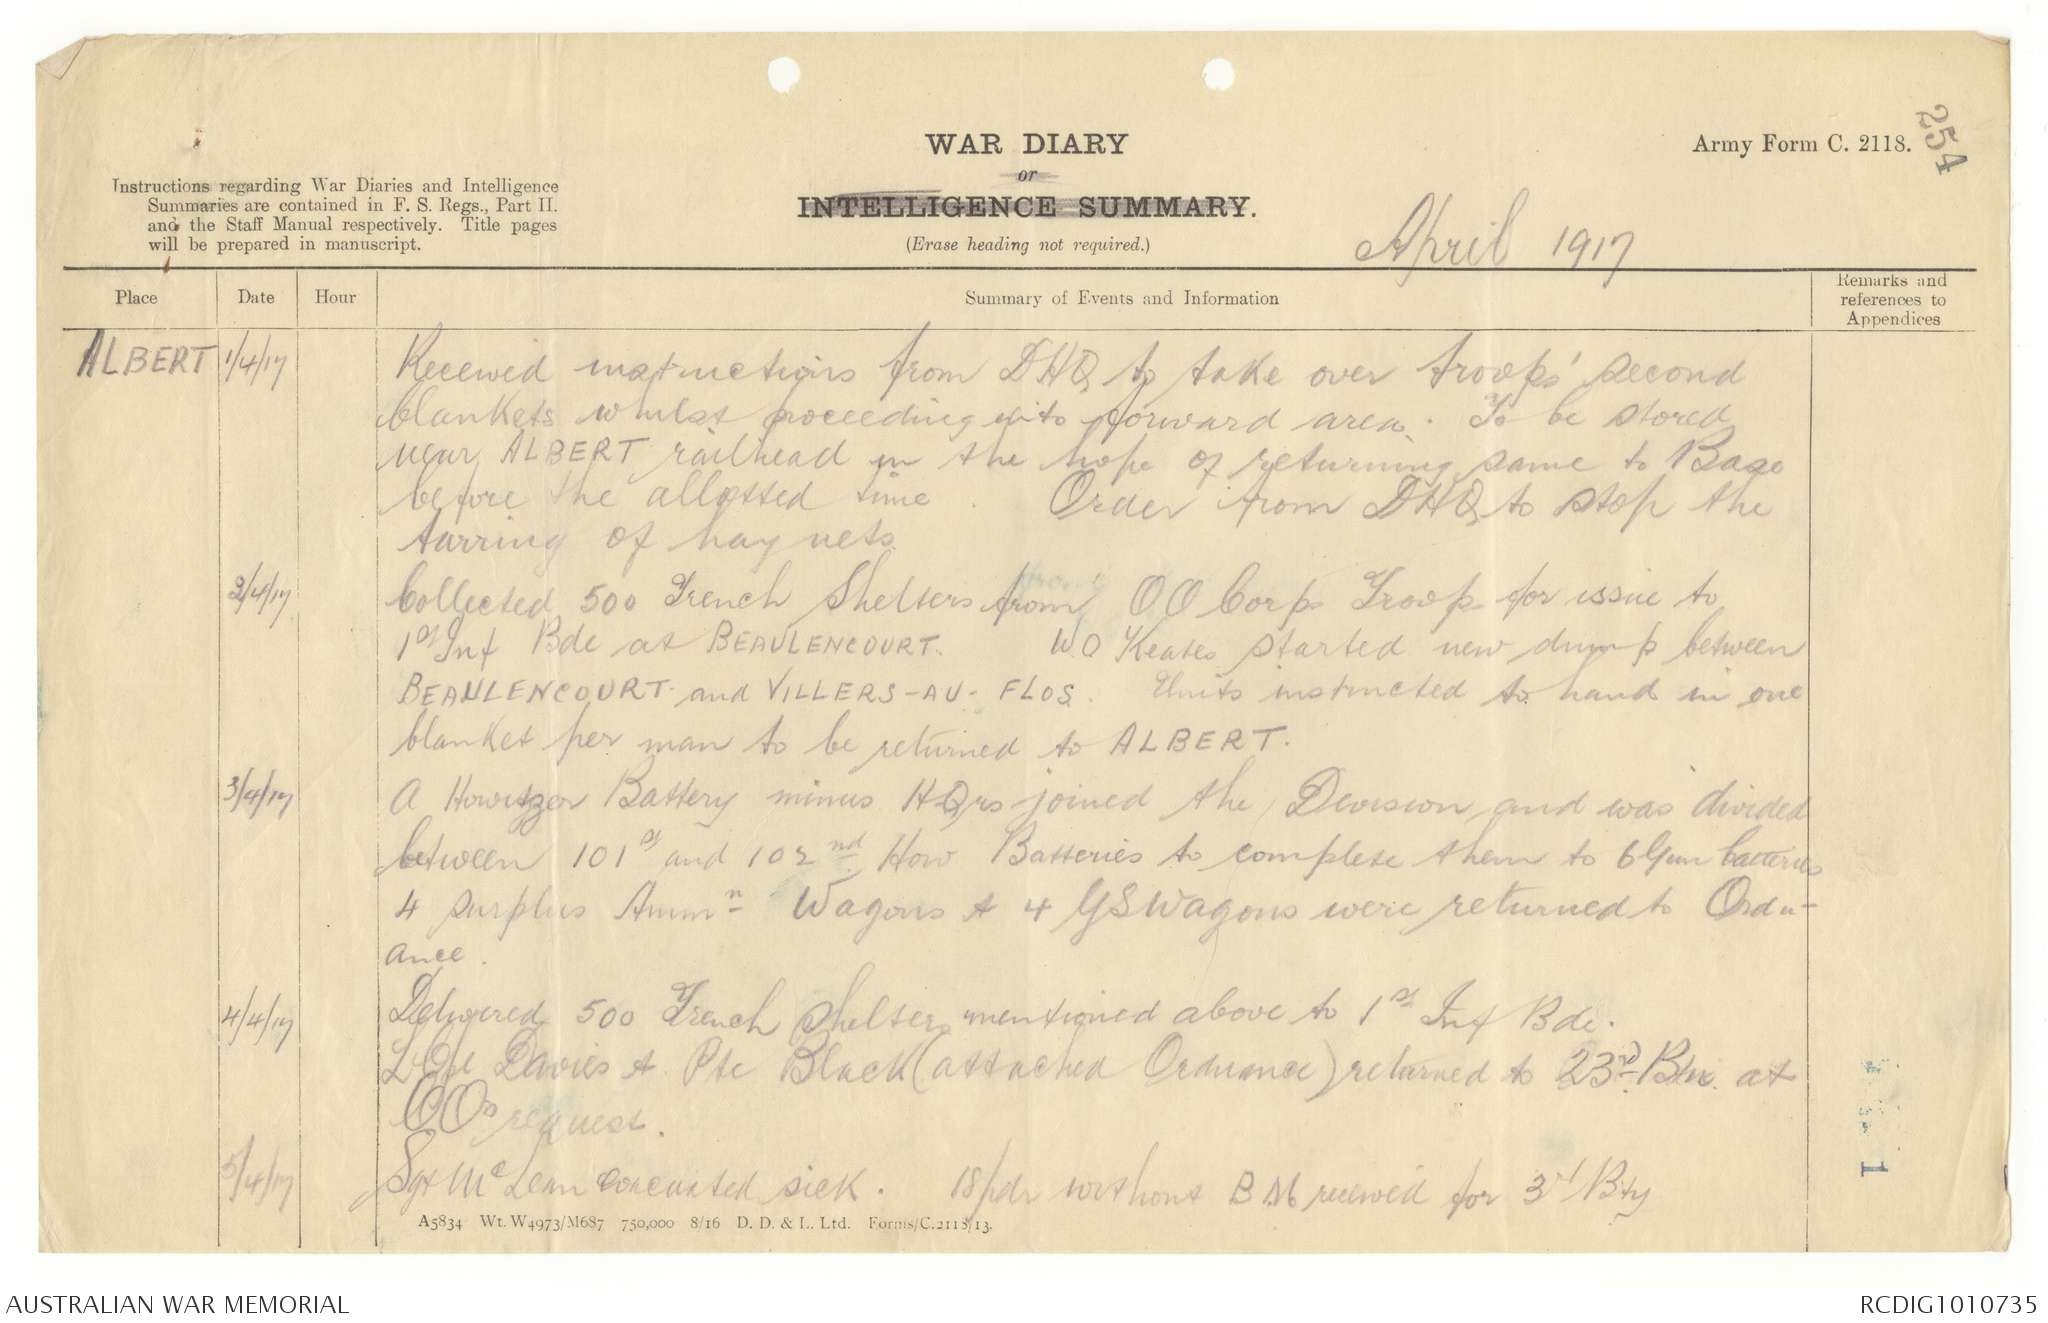 254
WAR DIARY
or
INTELLIGENCE SUMMARY.
(Erase heading not required.)
Army Form C. 2118.
Instructions regarding War Diaries and Intelligence
Summaries are contained in F. S. Regs., Part II.
and the Staff Manual respectively. Title pages
will be prepared in manuscript.
April 1917
Place Date Hour Summary of Events and Information Remarks and
references to
Appendices
ALBERT 1/4/17 Received instructions from DHQ to take over troops' second
blankets whilst proceeding into forward area. To be stored
near ALBERT railhead in the hope of returning same to Base
before the allotted time. Order from DHQ to stop the
tarring of hay nets.
2/4/17 Collected 500 Trench Shelters from OO Corps Troops for issue to
1st Inf Bde at BEAULENCOURT. WO Keates started new dump between
BEAULENCOURT and VILLERS-AU-FLOS. Units instructed to hand in one
blanket per man to be returned to ALBERT.
3/4/17 A Howitzer Battery minus HQrs joined the Division and was divided
between 101st and 102nd How Batteries to complete them to 6 Gun batteries
4 surplus Ammn Wagons & 4 GS Wagons were returned to Ordn-
ance.
4/4/17 Delivered 500 Trench Shelters mentioned above to 1st Inf Bde.
L/Cpl Davies & Pte Black (attached Ordnance) returned to 23rd Btn. at
COs request.
5/4/17 Sgt McLean evacuated sick. 18pdr without BM received for 3rd Bty
A5834 Wt. W4973/M687 750,000 8/16 D. D. & L. Ltd. Forms/C.2118/13.
1
AUSTRALIAN WAR MEMORIAL
RCDIG1010735